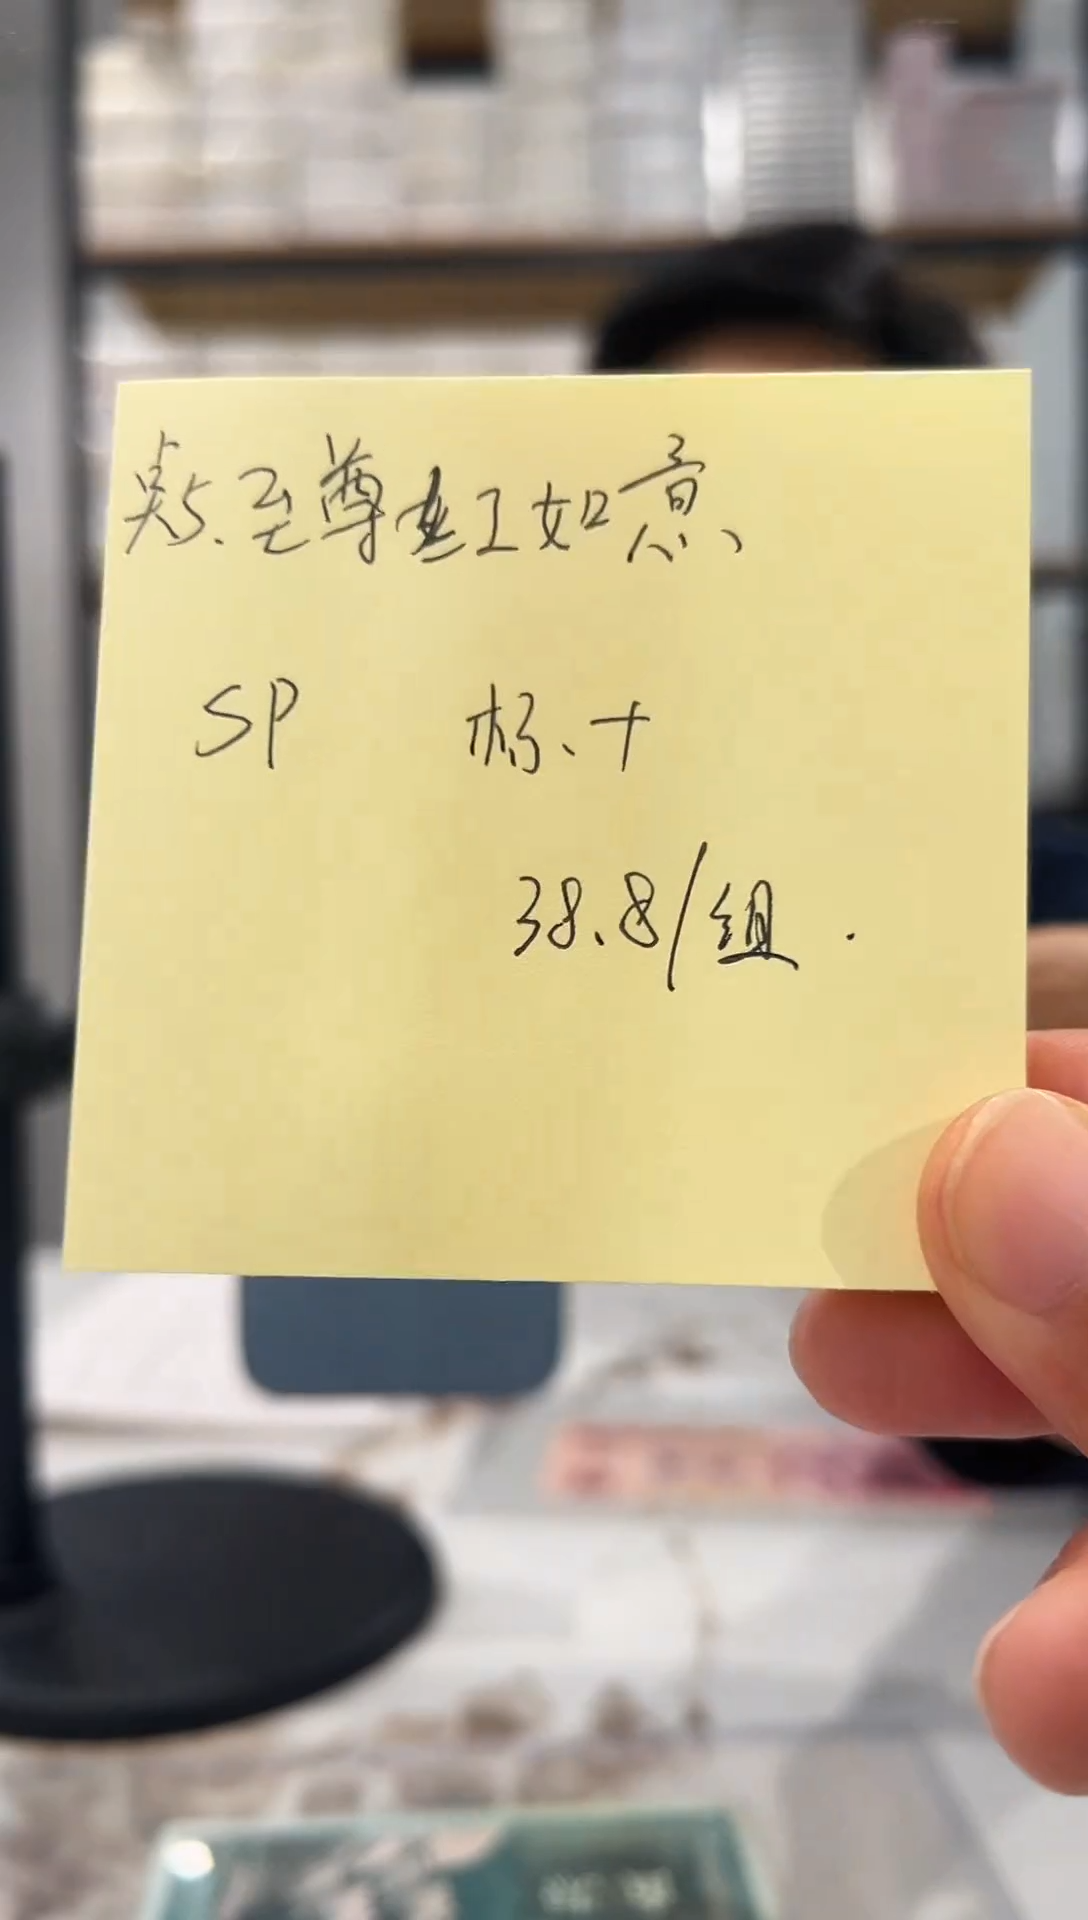 至尊红如意、
SP 标、十
38.8/组.